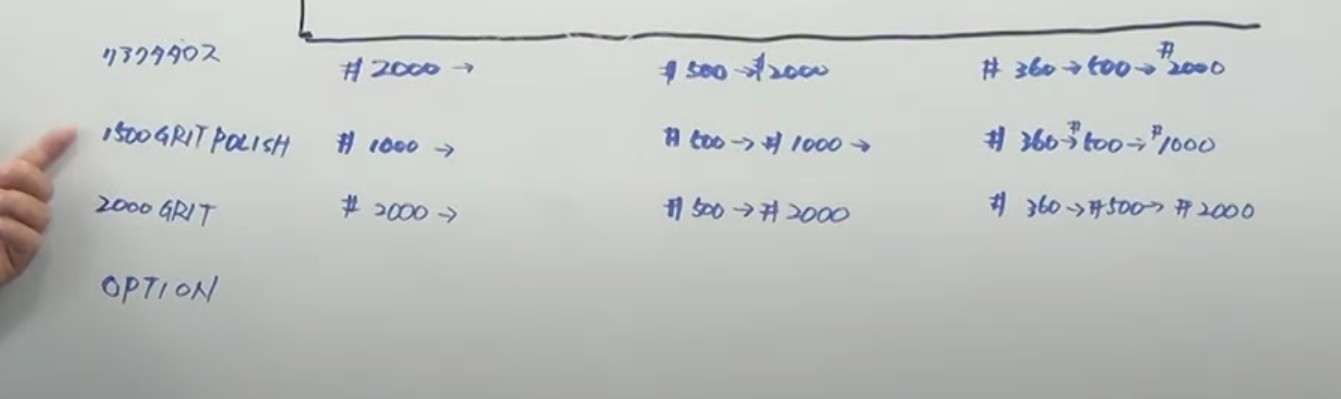 # 2000 → # 500 → # 2000 # 360 → 500 → # 2000
1500 GRIT POLISH # 1000 → # 500 → # 1000 → # 360 → # 500 → # 1000
2000 GRIT # 2000 → # 500 → # 2000 # 360 → # 500 → # 2000
OPTION